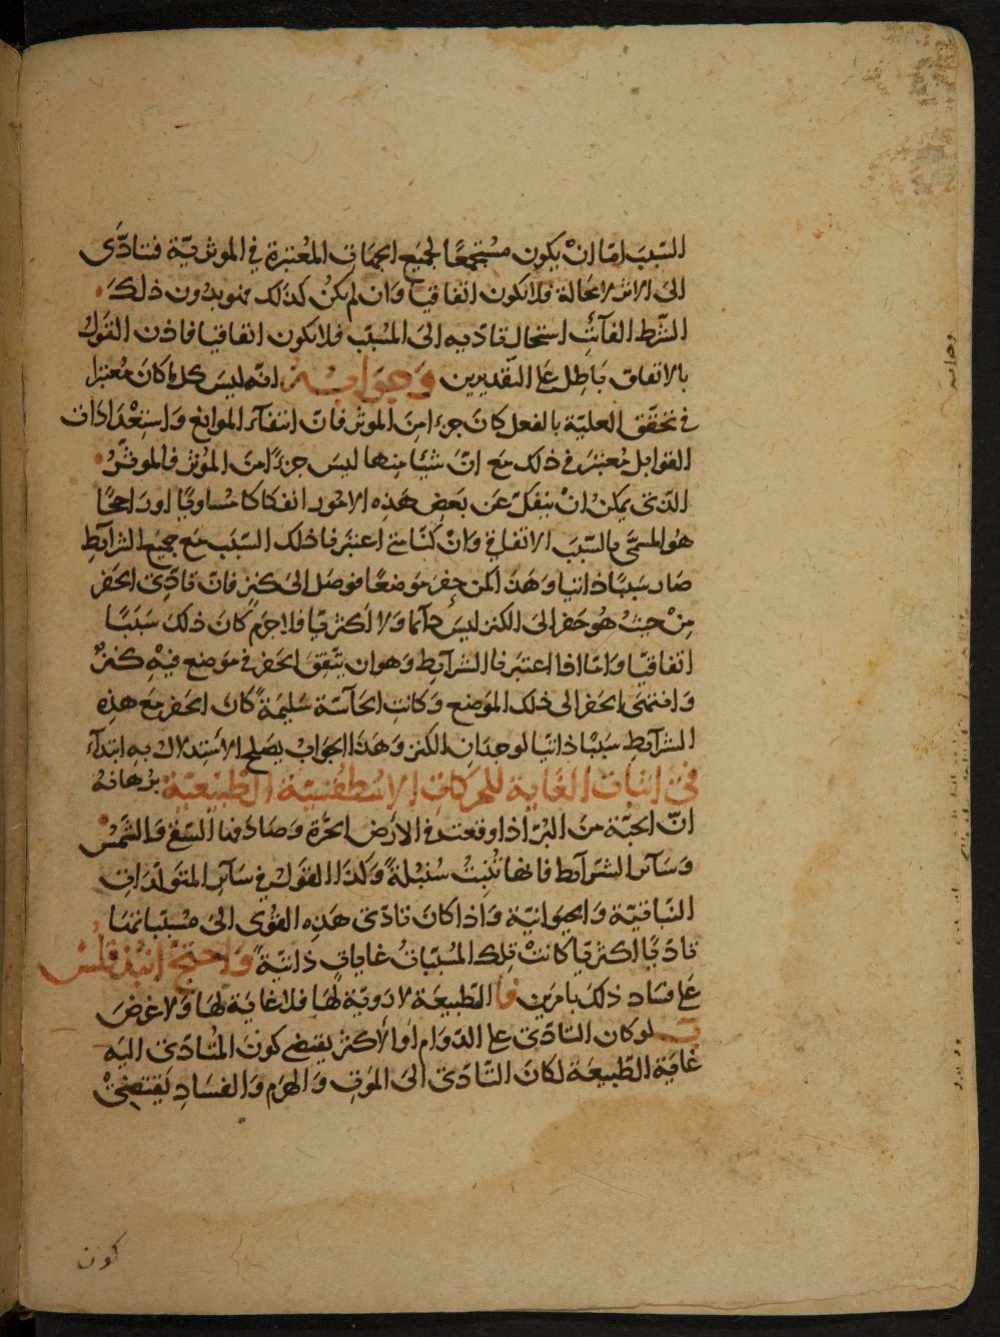 السّبب امّا ان يكون مستجمعًا لجميع الجهات المعتبرة في الموثريّة فتادّى
الى الاثر لا محالة فلا يكون اتفاقيا وان لم يكن كذلك فهو بدون ذلك
الشّرط الفآئت استحال تادّيه الى المسبّب فلا يكون اتفاقيا فاذن القول
بالاتفاق باطل على التّقديرين وجوابه انّه ليس كل ما كان معتبرا
في تحقّق العليّة بالفعل كان جزءا من الموثر فان انتفآء الموانع واستعدادات
القوابل معتبر في ذلك مع انّ شيئا منها ليس جزءًا من المؤثر فالموثر
الذي يمكن ان ينفكّ عن بعض هذه الامور انفكاكا مساويًا او راجحًا
هو المسمّى بالسّبب الاتفاقي وان كنّا متى اعتبرنا ذلك السّبب مع جميع الشرآئط
صار سببًا ذاتيا وهذا كمن حفر موضعًا فوصل الى كنز فان تادّي الحفر
من حيث هو حفر الى الكنز ليس دآئما ولا اكثريّا فلا جرم كان ذلك سببًا
اتفاقيّا وامّا اذا اعتبرنا الشرآئط وهو ان يتّفق الحفر في موضع فيه كنز
وانتهى الحفر الى ذلك الموضع وكانت الحآسّة سليمة كان الحفر مع هذه
الشرآئط سببًا ذاتيا لوجدان الكنز وهذا الجواب يصلح الاستدلال به ابتدآء
في اثبات الغاية للحركات الاسطقسيّة الطّبيعيّة برهانه
انّ الحبّة من البرّ اذا وقعت في الارض الحرّة وصادفها السّقي والشّمس
وسآئر الشرآئط فانها تنبت سنبلة وكذا القول في سآئر المتولّدات
النّباتيّة والحيوانيّة واذا كان تادّي هذه القوى الى مسبّباتها
تادّيًا اكثريّا كانت تلك المسبّبات غايات ذاتيّة واحتجّ انبذقلس
على فساد ذلك بامرين ا الطّبيعة لا رويّة لها فلا غاية لها ولا غرض
ب لو كان التّادّي على الدّوام او الاكثر يقتضي كون المتادّي اليه
غاية الطّبيعة لكان التّادّي الى الموت والهرم والفساد يقتضي
كون